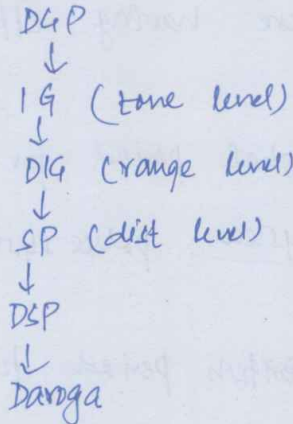 DGP
↓
IG (zone level)
↓
DIG (range level)
↓
SP (dist level)
↓
DSP
↓
Daroga